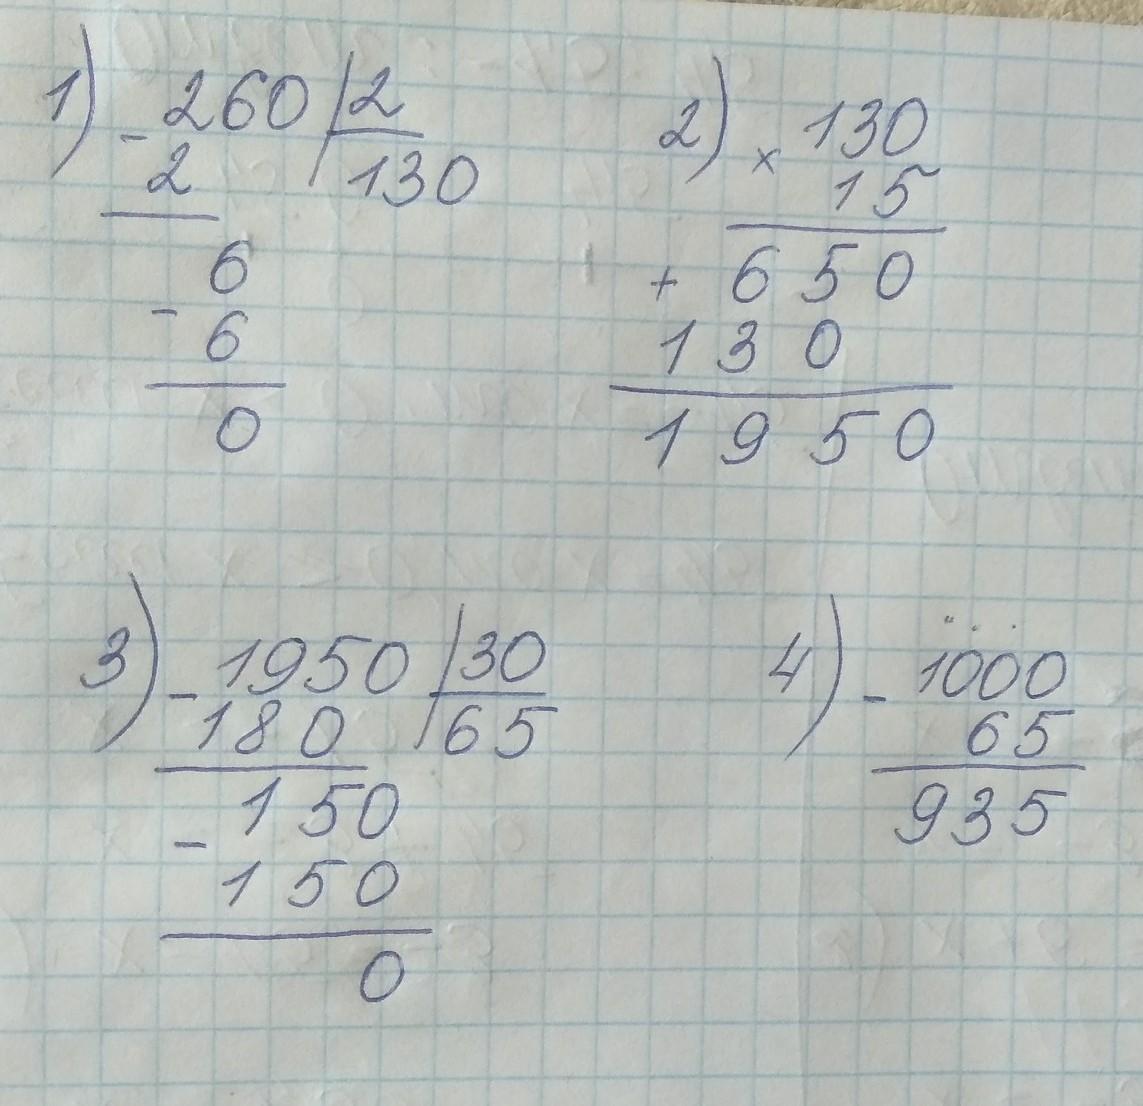 1) - 260 | 2
2 130
6
- 6
0
2) × 130
15
+ 650
130
1950
3) - 1950 | 30
180 65
- 150
150
0
4) - 1000
65
935